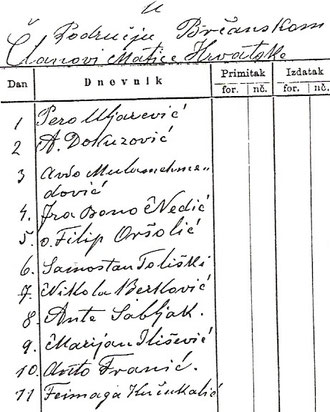 u
Području Brčanskom
Članovi Matice Hrvatske
Dan Dnevnik Primitak Izdatak
for. nč. for. nč.
1 Pero Uljarević
2 A. Dokuzović
3 Avdo Mulamehme-
dović
4. Fra Bono Nedić
5. o. Filip Oršolić
6. Samostan Toliški
7. Nikola Berković
8 Ante Sabljak.
9. Marijan Ilišević
10. Anto Franić.
11 Feimaga Kučukalić